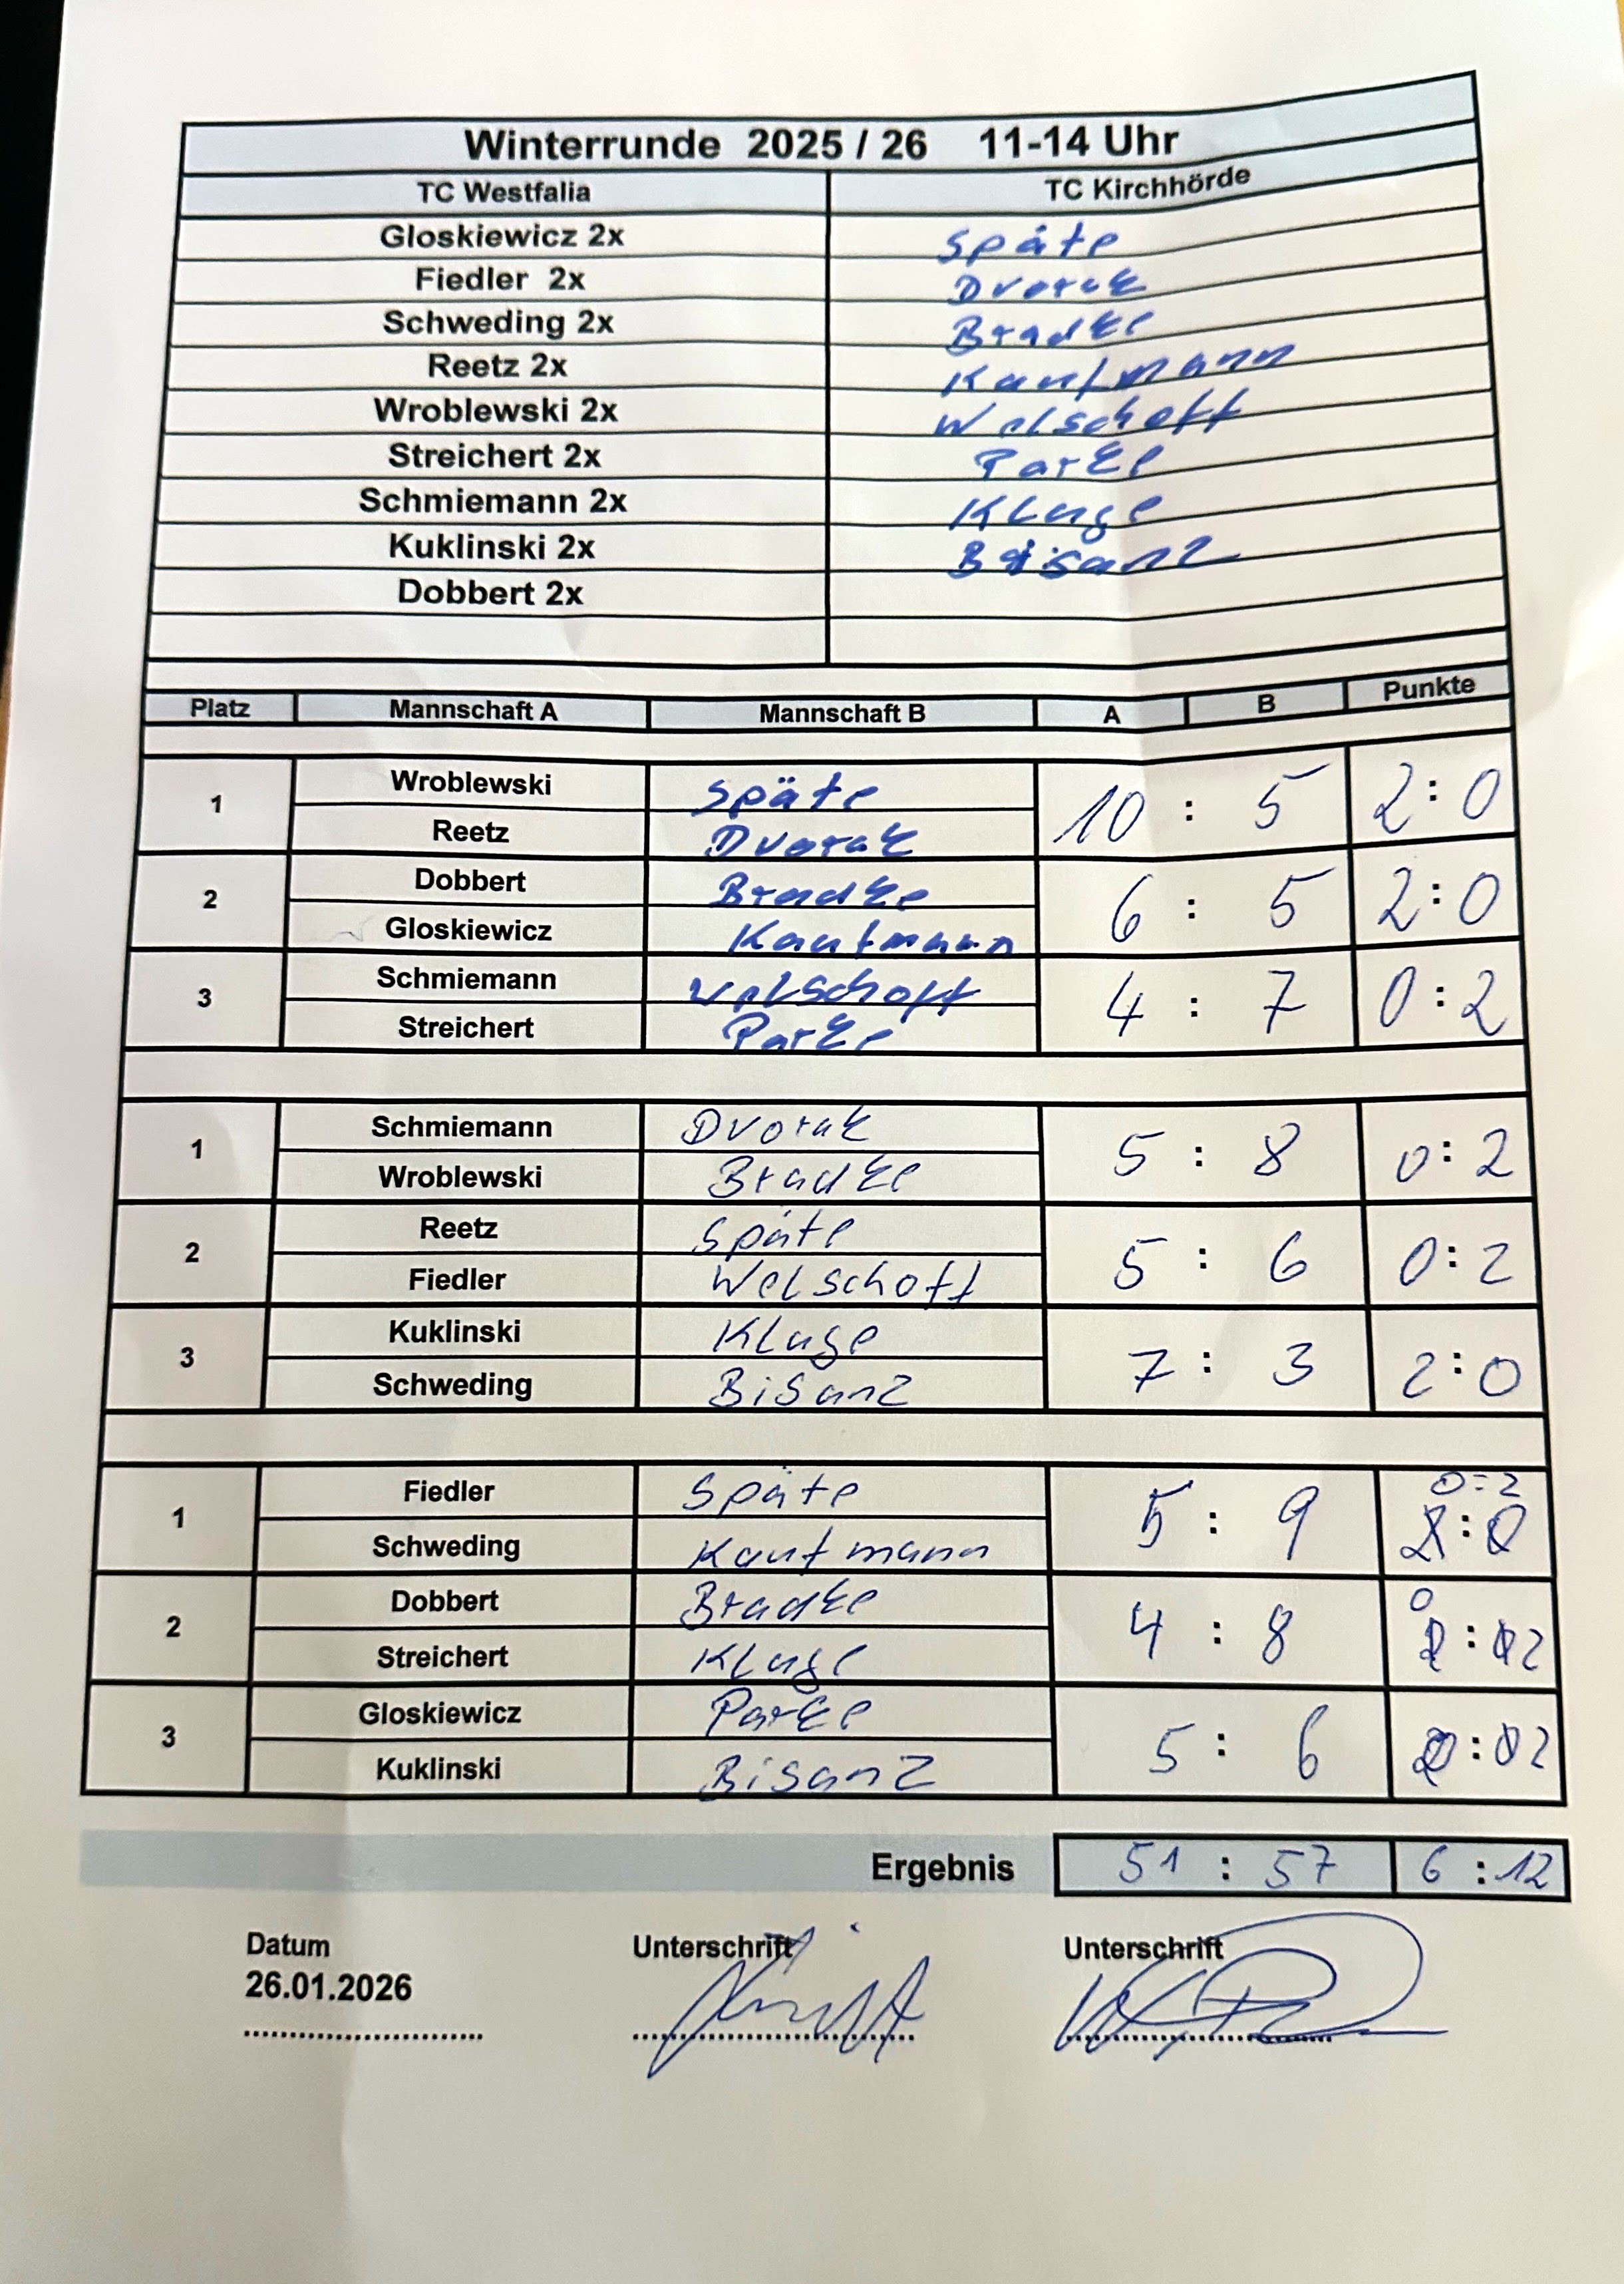 Winterrunde 2025 / 26 11-14 Uhr
TC Westfalia TC Kirchhörde
Gloskiewicz 2x Späte
Fiedler 2x Dvorak
Schweding 2x Bradke
Reetz 2x Kaufmann
Wroblewski 2x Welschoff
Streichert 2x Parke
Schmiemann 2x Kluge
Kuklinski 2x Bisanz
Dobbert 2x
Platz Mannschaft A Mannschaft B A B Punkte
Wroblewski Späte
1 10 : 5 2 : 0
Reetz Dvorak
Dobbert Bradke
2 6 : 5 2 : 0
Gloskiewicz Kaufmann
Schmiemann Welschoff
3 4 : 7 0 : 2
Streichert Parke
Schmiemann Dvorak
1 5 : 8 0 : 2
Wroblewski Bradke
Reetz Späte
2 5 : 6 0 : 2
Fiedler Welschoff
Kuklinski Kluge
3 7 : 3 2 : 0
Schweding Bisanz
Fiedler Späte 0 : 2
1 5 : 9
Schweding Kaufmann
Dobbert Bradke
2 4 : 8 0 : 2
Streichert Kluge
Gloskiewicz Parke
3 5 : 6 0 : 2
Kuklinski Bisanz
Ergebnis 51 : 57 6 : 12
Datum Unterschrift Unterschrift
26.01.2026